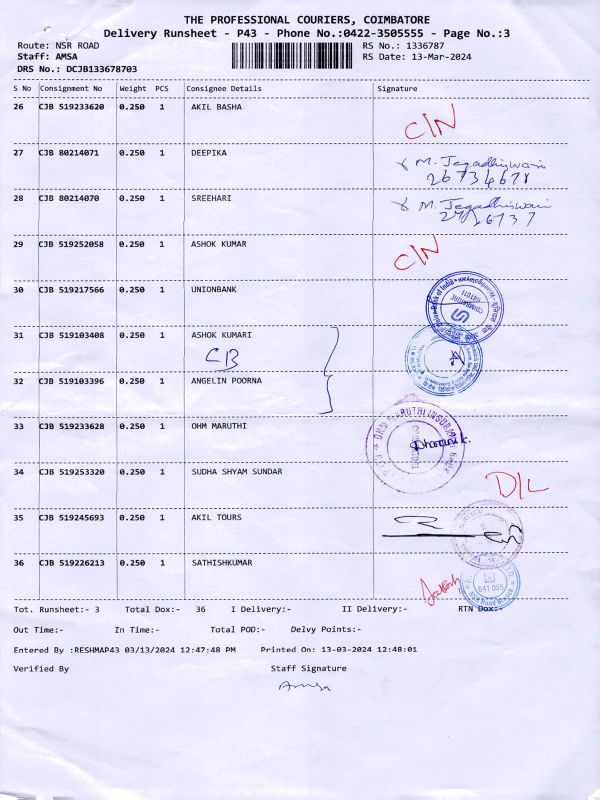 THE PROFESSIONAL COURIERS, COIMBATORE
Delivery Runsheet - P43 - Phone No.:0422-3505555 - Page No.:3
Route: NSR ROAD RS No.: 1336787
Staff: AMSA RS Date: 13-Mar-2024
DRS No.: DCJB133678703
S No Consignment No Weight PCS Consignee Details Signature
26 CJB 519233620 0.250 1 AKIL BASHA
C/N
27 CJB 80214071 0.250 1 DEEPIKA
M. Jegadhiswari
28 CJB 80214070 0.250 1 SREEHARI
M. Jegadhiswari
29 CJB 519252058 0.250 1 ASHOK KUMAR
C/N
30 CJB 519217566 0.250 1 UNIONBANK
31 CJB 519103408 0.250 1 ASHOK KUMARI
CB
32 CJB 519103396 0.250 1 ANGELIN POORNA
33 CJB 519233628 0.250 1 OHM MARUTHI
34 CJB 519253320 0.250 1 SUDHA SHYAM SUNDAR
D/L
35 CJB 519245693 0.250 1 AKIL TOURS
36 CJB 519226213 0.250 1 SATHISHKUMAR
641 025
Tot. Runsheet:- 3 Total Dox:- 36 I Delivery:- II Delivery:- RTN Dox:-
Out Time:- In Time:- Total POD:- Delvy Points:-
Entered By :RESHMAP43 03/13/2024 12:47:48 PM Printed On: 13-03-2024 12:48:01
Verified By Staff Signature
Amsa